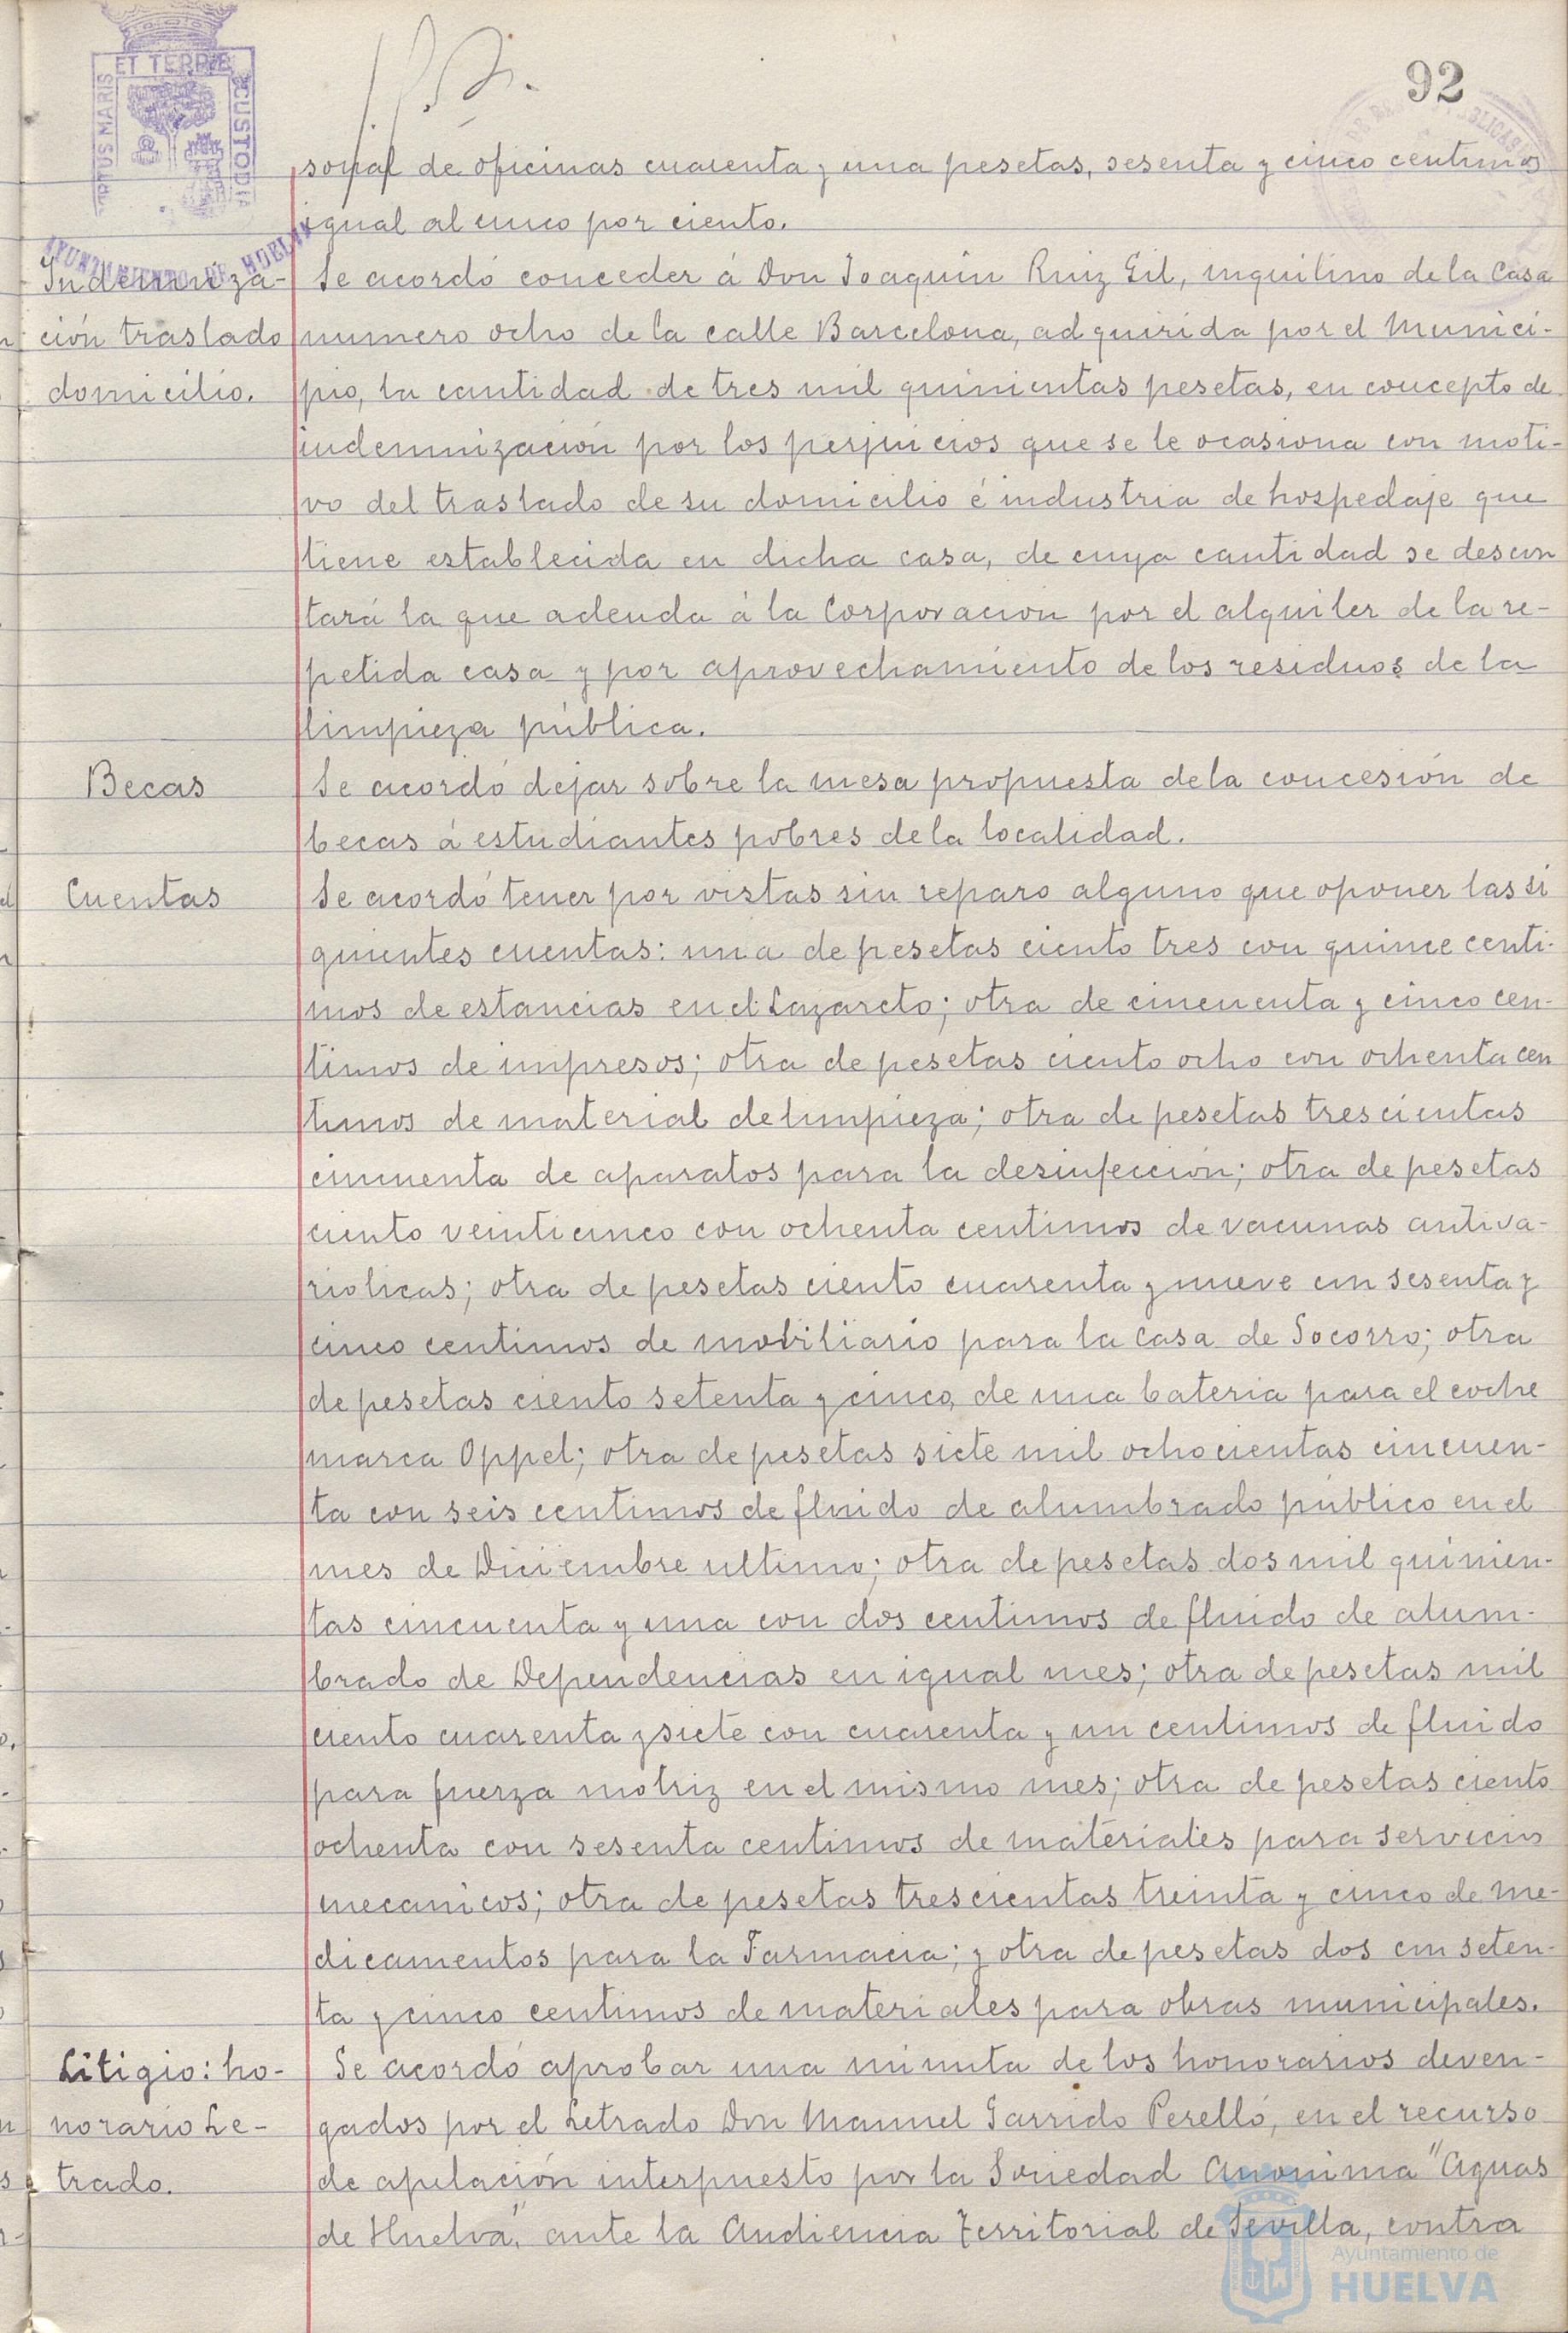 92
ET TERRÆ
CUSTODIA
AYUNTAMIENTO DE HUELVA
sonal de oficinas cuarenta y una pesetas, sesenta y cinco centimos
igual al cinco por ciento.
Indemniza-
ción traslado
domicilio.
Se acordó conceder á Don Joaquin Ruiz Gil, inquilino de la Casa
numero ocho de la calle Barcelona, adquirida por el Munici-
pio, la cantidad de tres mil quinientas pesetas, en concepto de
indemnización por los perjuicios que se le ocasiona con moti-
vo del traslado de su domicilio é industria de hospedaje que
tiene establecida en dicha casa, de cuya cantidad se descon
tará la que adeuda á la Corporación por el alquiler de la re-
petida casa y por aprovechamiento de los residuos de la
limpieza pública.
Becas
Se acordó dejar sobre la mesa propuesta de la concesión de
becas á estudiantes pobres de la localidad.
Cuentas
Se acordó tener por vistas sin reparo alguno que oponer las si
guientes cuentas: una de pesetas ciento tres con quince centi-
mos de estancias en el Lazareto; otra de cincuenta y cinco cen-
timos de impresos; otra de pesetas ciento ocho con ochenta cen
timos de material de limpieza; otra de pesetas trescientas
cincuenta de aparatos para la desinfección; otra de pesetas
ciento veinticinco con ochenta centimos de vacunas antiva-
riolicas; otra de pesetas ciento cuarenta y nueve con sesenta y
cinco centimos de mobiliario para la Casa de Socorro; otra
de pesetas ciento setenta y cinco, de una bateria para el coche
marca Oppel; otra de pesetas siete mil ochocientas cincuen-
ta con seis centimos de fluido de alumbrado público en el
mes de Diciembre ultimo; otra de pesetas dos mil quinien-
tas cincuenta y una con dos centimos de fluido de alum-
brado de Dependencias en igual mes; otra de pesetas mil
ciento cuarenta y siete con cuarenta y un centimos de fluido
para fuerza motriz en el mismo mes; otra de pesetas ciento
ochenta con sesenta centimos de materiales para servicios
mecanicos; otra de pesetas trescientas treinta y cinco de me-
dicamentos para la Farmacia; y otra de pesetas dos con seten-
ta y cinco centimos de materiales para obras municipales.
Litigio: ho-
norario Le-
trado.
Se acordó aprobar una minuta de los honorarios deven-
gados por el Letrado Don Manuel Garrido Perelló, en el recurso
de apelación interpuesto por la Sociedad Anonima "Aguas
de Huelva", ante la Audiencia Territorial de Sevilla, contra
Ayuntamiento de
HUELVA